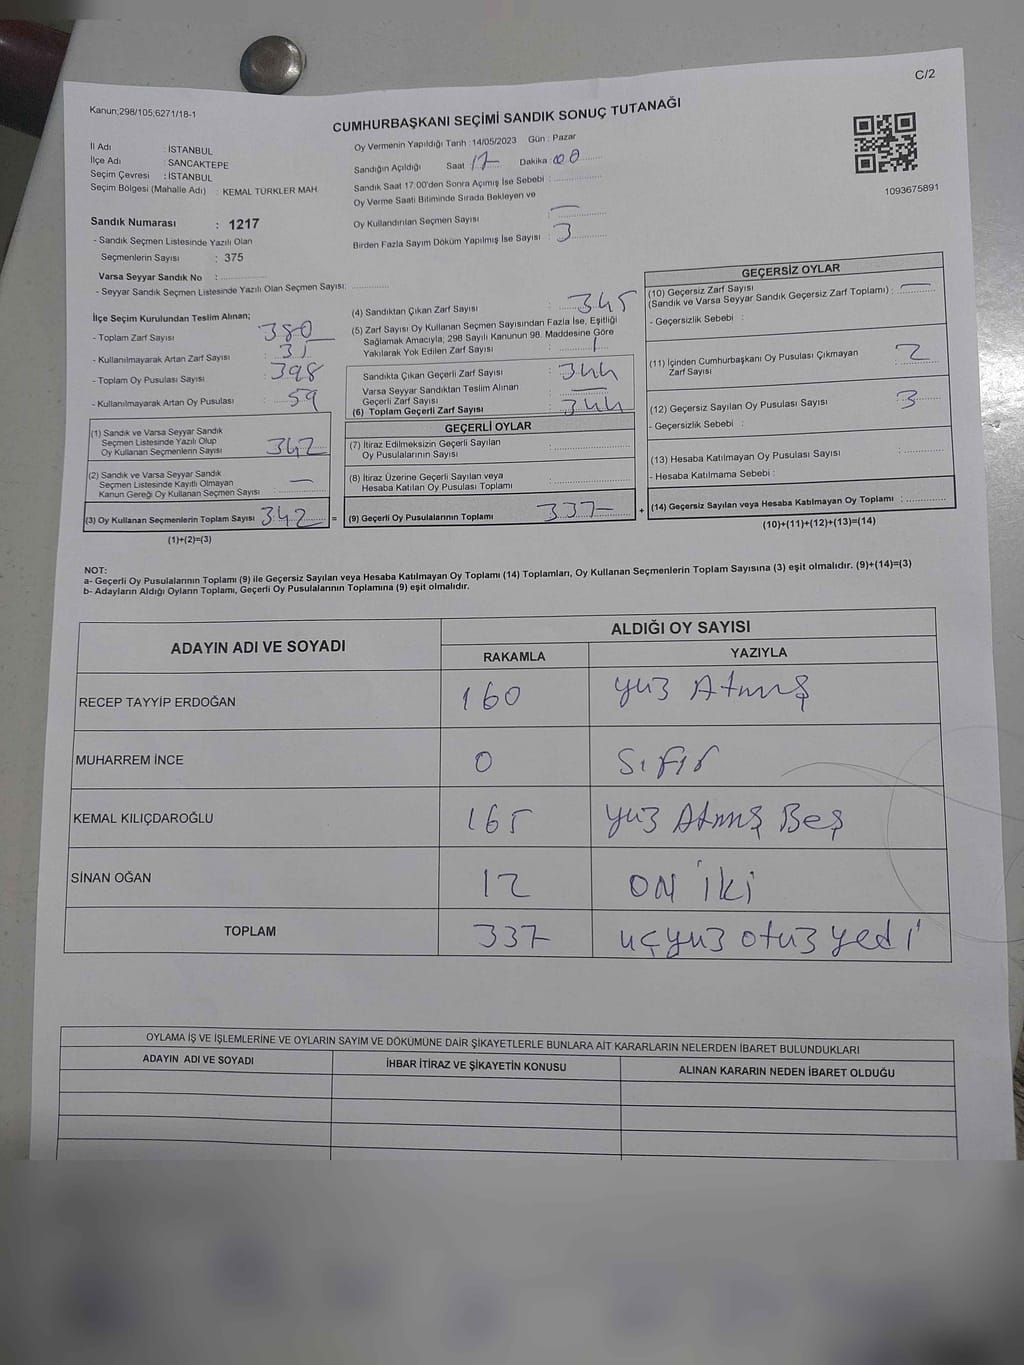 C/2
Kanun;298/105;6271/18-1
CUMHURBAŞKANI SEÇİMİ SANDIK SONUÇ TUTANAĞI
İl Adı : İSTANBUL
İlçe Adı : SANCAKTEPE
Seçim Çevresi : İSTANBUL
Seçim Bölgesi (Mahalle Adı) : KEMAL TÜRKLER MAH.
Sandık Numarası : 1217
- Sandık Seçmen Listesinde Yazılı Olan
Seçmenlerin Sayısı : 375
Varsa Seyyar Sandık No :
- Seyyar Sandık Seçmen Listesinde Yazılı Olan Seçmen Sayısı:
Oy Vermenin Yapıldığı Tarih :14/05/2023 Gün : Pazar
Sandığın Açıldığı Saat 17 Dakika 00
Sandık Saat 17:00'den Sonra Açımış İse Sebebi :
Oy Verme Saati Bitiminde Sırada Bekleyen ve
Oy Kullandırılan Seçmen Sayısı : —
Birden Fazla Sayım Döküm Yapılmış İse Sayısı : 3
1093675891
İlçe Seçim Kurulundan Teslim Alınan;
- Toplam Zarf Sayısı : 380
- Kullanılmayarak Artan Zarf Sayısı : 31
- Toplam Oy Pusulası Sayısı : 398
- Kullanılmayarak Artan Oy Pusulası : 59
(1) Sandık ve Varsa Seyyar Sandık
Seçmen Listesinde Yazılı Olup
Oy Kullanan Seçmenlerin Sayısı : 342
(2) Sandık ve Varsa Seyyar Sandık
Seçmen Listesinde Kayıtlı Olmayan
Kanun Gereği Oy Kullanan Seçmen Sayısı : —
(3) Oy Kullanan Seçmenlerin Toplam Sayısı : 342 =
(1)+(2)=(3)
(4) Sandıktan Çıkan Zarf Sayısı : 345
(5) Zarf Sayısı Oy Kullanan Seçmen Sayısından Fazla İse, Eşitliği
Sağlamak Amacıyla; 298 Sayılı Kanunun 98. Maddesine Göre
Yakılarak Yok Edilen Zarf Sayısı : 1
Sandıkta Çıkan Geçerli Zarf Sayısı : 344
Varsa Seyyar Sandıktan Teslim Alınan
Geçerli Zarf Sayısı : —
(6) Toplam Geçerli Zarf Sayısı : 344
GEÇERLİ OYLAR
(7) İtiraz Edilmeksizin Geçerli Sayılan
Oy Pusulalarının Sayısı :
(8) İtiraz Üzerine Geçerli Sayılan veya
Hesaba Katılan Oy Pusulası Toplamı :
(9) Geçerli Oy Pusulalarının Toplamı : 337 +
GEÇERSİZ OYLAR
(10) Geçersiz Zarf Sayısı
(Sandık ve Varsa Seyyar Sandık Geçersiz Zarf Toplamı) : —
- Geçersizlik Sebebi :
(11) İçinden Cumhurbaşkanı Oy Pusulası Çıkmayan
Zarf Sayısı : 2
(12) Geçersiz Sayılan Oy Pusulası Sayısı : 3
- Geçersizlik Sebebi :
(13) Hesaba Katılmayan Oy Pusulası Sayısı :
- Hesaba Katılmama Sebebi :
(14) Geçersiz Sayılan veya Hesaba Katılmayan Oy Toplamı :
(10)+(11)+(12)+(13)=(14)
NOT:
a- Geçerli Oy Pusulalarının Toplamı (9) ile Geçersiz Sayılan veya Hesaba Katılmayan Oy Toplamı (14) Toplamları, Oy Kullanan Seçmenlerin Toplam Sayısına (3) eşit olmalıdır. (9)+(14)=(3)
b- Adayların Aldığı Oyların Toplamı, Geçerli Oy Pusulalarının Toplamına (9) eşit olmalıdır.
ADAYIN ADI VE SOYADI
ALDIĞI OY SAYISI
RAKAMLA YAZIYLA
RECEP TAYYİP ERDOĞAN 160 yüz Atmış
MUHARREM İNCE 0 Sıfır
KEMAL KILIÇDAROĞLU 165 yüz Atmış Beş
SİNAN OĞAN 12 ON iki
TOPLAM 337 uçyuz otuz yedi
OYLAMA İŞ VE İŞLEMLERİNE VE OYLARIN SAYIM VE DÖKÜMÜNE DAİR ŞİKAYETLERLE BUNLARA AİT KARARLARIN NELERDEN İBARET BULUNDUKLARI
ADAYIN ADI VE SOYADI İHBAR İTİRAZ VE ŞİKAYETİN KONUSU ALINAN KARARIN NEDEN İBARET OLDUĞU